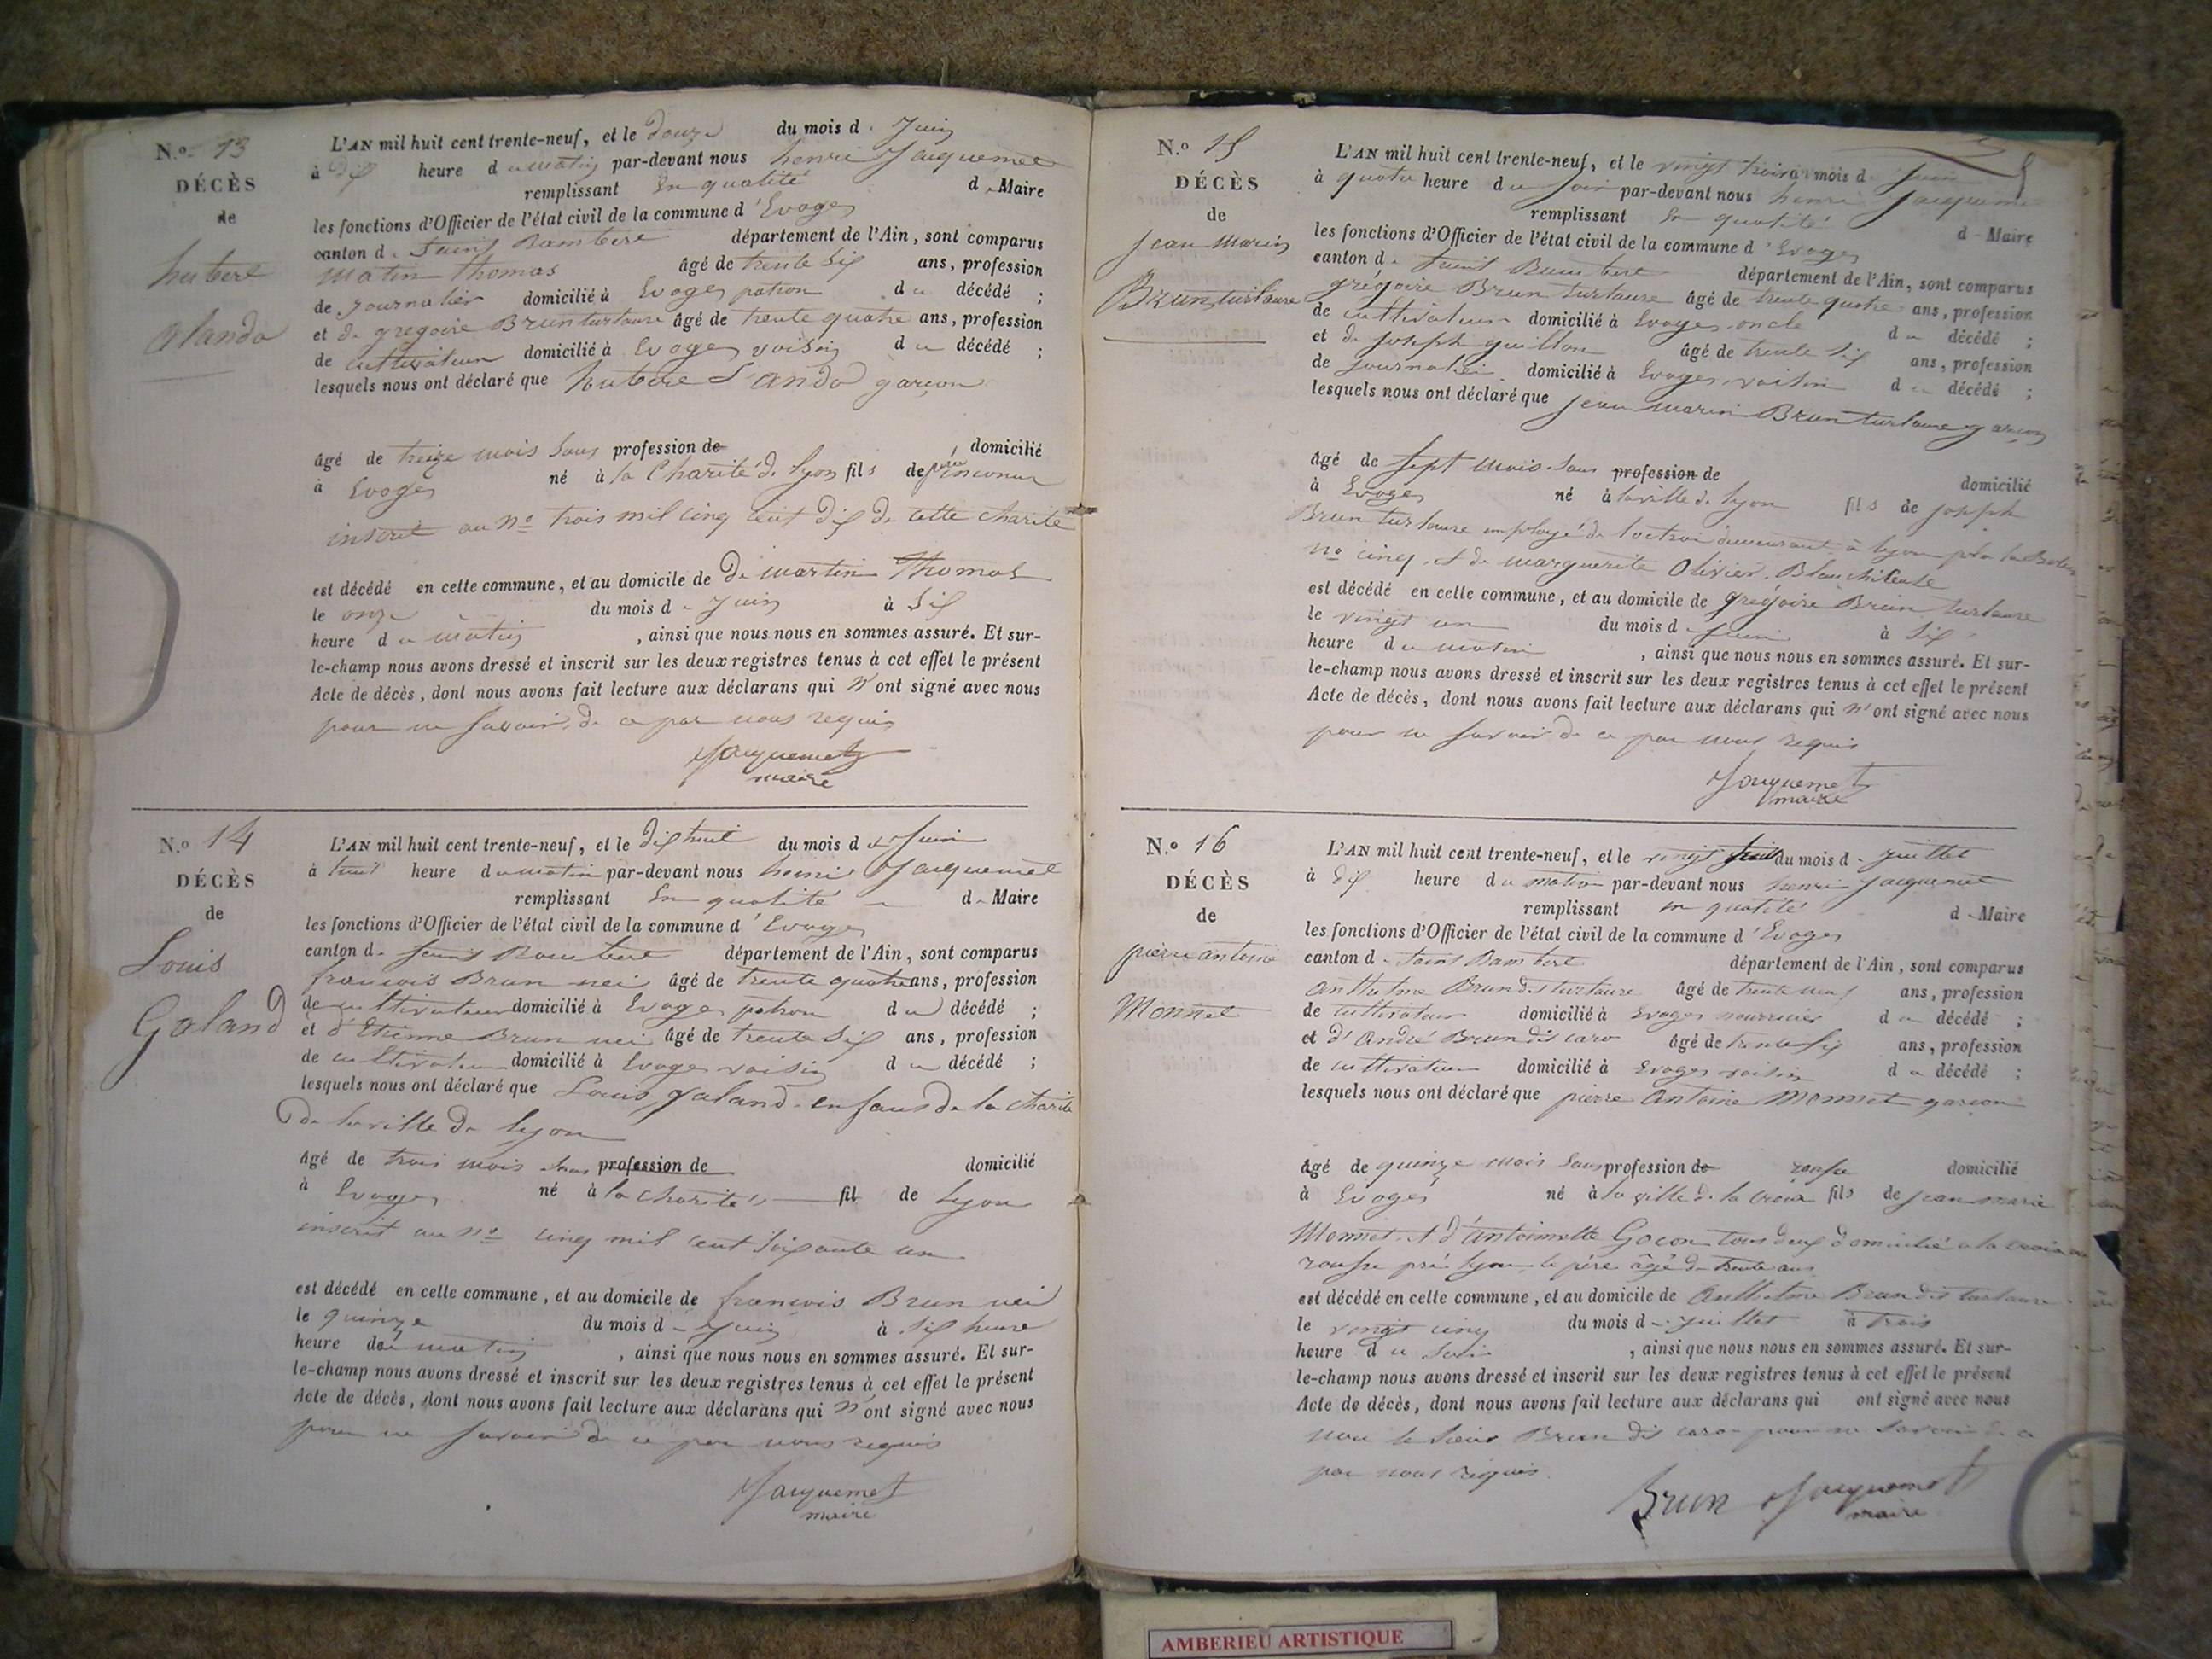 N.º 13
DÉCÈS
de
hubere
alando
L'AN mil huit cent trente-neuf, et le douze du mois d. Juin
à dix heure du matin par-devant nous henri Jacquemet
remplissant en qualité d Maire
les fonctions d'Officier de l'état civil de la commune d'Evoges
canton d. Saint Rambert département de l'Ain, sont comparus
Matin thomas âgé de trente six ans, profession
de journalier domicilié à Evoges patron du décédé ;
et de gregoire Brun turtaure âgé de trente quatre ans, profession
de cultivateur domicilié à Evoges voisin du décédé ;
lesquels nous ont déclaré que hubere garçon
âgé de treize mois sans profession de domicilié
à Evoges né à la Charité de lyon fils de père inconnu
inscrit au nº trois mil cinq cent dix de cette charité
est décédé en cette commune, et au domicile de De martin Thomas
le onze du mois d Juin à six
heure du matin, ainsi que nous nous en sommes assuré. Et sur-
le-champ nous avons dressé et inscrit sur les deux registres tenus à cet effet le présent
Acte de décès, dont nous avons fait lecture aux déclarans qui n'ont signé avec nous
pour ne savoir, de ce par nous requis
Jacquemet
maire
N.º 14
DÉCÈS
de
Louis
Galand
L'AN mil huit cent trente-neuf, et le dix huit du mois d Juin
à huit heure du matin par-devant nous henri Jacquemet
remplissant en qualité d Maire
les fonctions d'Officier de l'état civil de la commune d'Evoges
canton d. Saint Rambert département de l'Ain, sont comparus
francois Brun nei âgé de trente quatre ans, profession
de cultivateur domicilié à Evoges patron du décédé ;
et d'Etienne Brun nei âgé de trente six ans, profession
de cultivateur domicilié à Evoges voisin du décédé ;
lesquels nous ont déclaré que Louis galand enfans de la charité
de la ville de lyon
âgé de trois mois sans profession de domicilié
à Evoges né à la charité fil de lyon
inscrit au nº cinq mil cent soixante un
est décédé en cette commune, et au domicile de francois Brun nei
le quinze du mois d Juin à six heure
heure du matin, ainsi que nous nous en sommes assuré. Et sur-
le-champ nous avons dressé et inscrit sur les deux registres tenus à cet effet le présent
Acte de décès, dont nous avons fait lecture aux déclarans qui n'ont signé avec nous
pour ne savoir de ce par nous requis
Jacquemet
maire
N.º 15
DÉCÈS
de
Jean Marin
Brun turtaure
L'AN mil huit cent trente-neuf, et le vingt trois du mois d. Juin
à quatre heure du soir par-devant nous henri Jacquemet
remplissant en qualité d Maire
les fonctions d'Officier de l'état civil de la commune d'Evoges
canton d. Saint Rambert département de l'Ain, sont comparus
grégoire Brun turtaure âgé de trente quatre ans, profession
de cultivateur domicilié à Evoges oncle du décédé ;
et de Joseph guillon âgé de trente six ans, profession
de journalier domicilié à Evoges voisin du décédé ;
lesquels nous ont déclaré que jean marin Brun turtaure garçon
âgé de sept mois sans profession de domicilié
à Evoges né à la ville de lyon fils de joseph
Brun turtaure employé de l'octroi demeurant à lyon
nº cinq et de marguerite Olivier
est décédé en cette commune, et au domicile de grégoire Brun turtaure
le vingt un du mois d Juin à six
heure du matin, ainsi que nous nous en sommes assuré. Et sur-
le-champ nous avons dressé et inscrit sur les deux registres tenus à cet effet le présent
Acte de décès, dont nous avons fait lecture aux déclarans qui n'ont signé avec nous
pour ne savoir de ce par nous requis
Jacquemet
maire
N.º 16
DÉCÈS
de
pierre antoine
Monnet
L'AN mil huit cent trente-neuf, et le vingt huit du mois d. juillet
à dix heure du matin par-devant nous henri Jacquemet
remplissant en qualité d Maire
les fonctions d'Officier de l'état civil de la commune d'Evoges
canton d. Saint Rambert département de l'Ain, sont comparus
anthelme Brun dit turtaure âgé de trente neuf ans, profession
de cultivateur domicilié à Evoges nourricier du décédé ;
et d'André Brun dit caro âgé de trente six ans, profession
de cultivateur domicilié à Evoges voisin du décédé ;
lesquels nous ont déclaré que pierre Antoine Monnet garçon
âgé de quinze mois sans profession de rousse domicilié
à Evoges né à la ville de la croix fils de jean marie
Monnet et d'antoinette Gocon tous deux domicilié a la croix
rousse près lyon le père âgé de trente ans
est décédé en cette commune, et au domicile de Anthelme Brun dit turtaure
le vingt cinq du mois d. juillet à trois
heure du soir, ainsi que nous nous en sommes assuré. Et sur-
le-champ nous avons dressé et inscrit sur les deux registres tenus à cet effet le présent
Acte de décès, dont nous avons fait lecture aux déclarans qui ont signé avec nous
non le sieur Brun dit caro pour ne savoir de ce
par nous requis
Brun Jacquemet
maire
AMBERIEU ARTISTIQUE